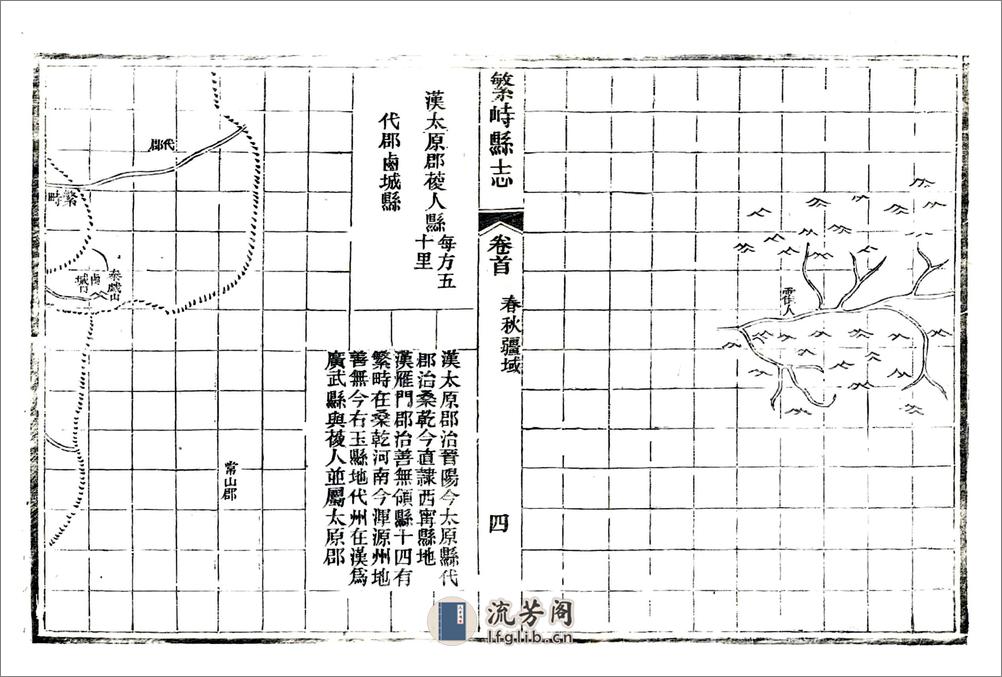 霍人
繁峙縣志
卷首
春秋疆域
四
漢太原郡葰人縣每方五十里
代郡鹵城縣
漢太原郡治晉陽今太原縣代
郡治桑乾今直隸西寧縣地
漢雁門郡治善無領縣十四有
繁畤在桑乾河南今渾源州地
善無今右玉縣地代州在漢爲
廣武縣與葰人並屬太原郡
常山郡
代郡
泰戲山
鹵城
繁畤
流芳阁
lfglib.cn